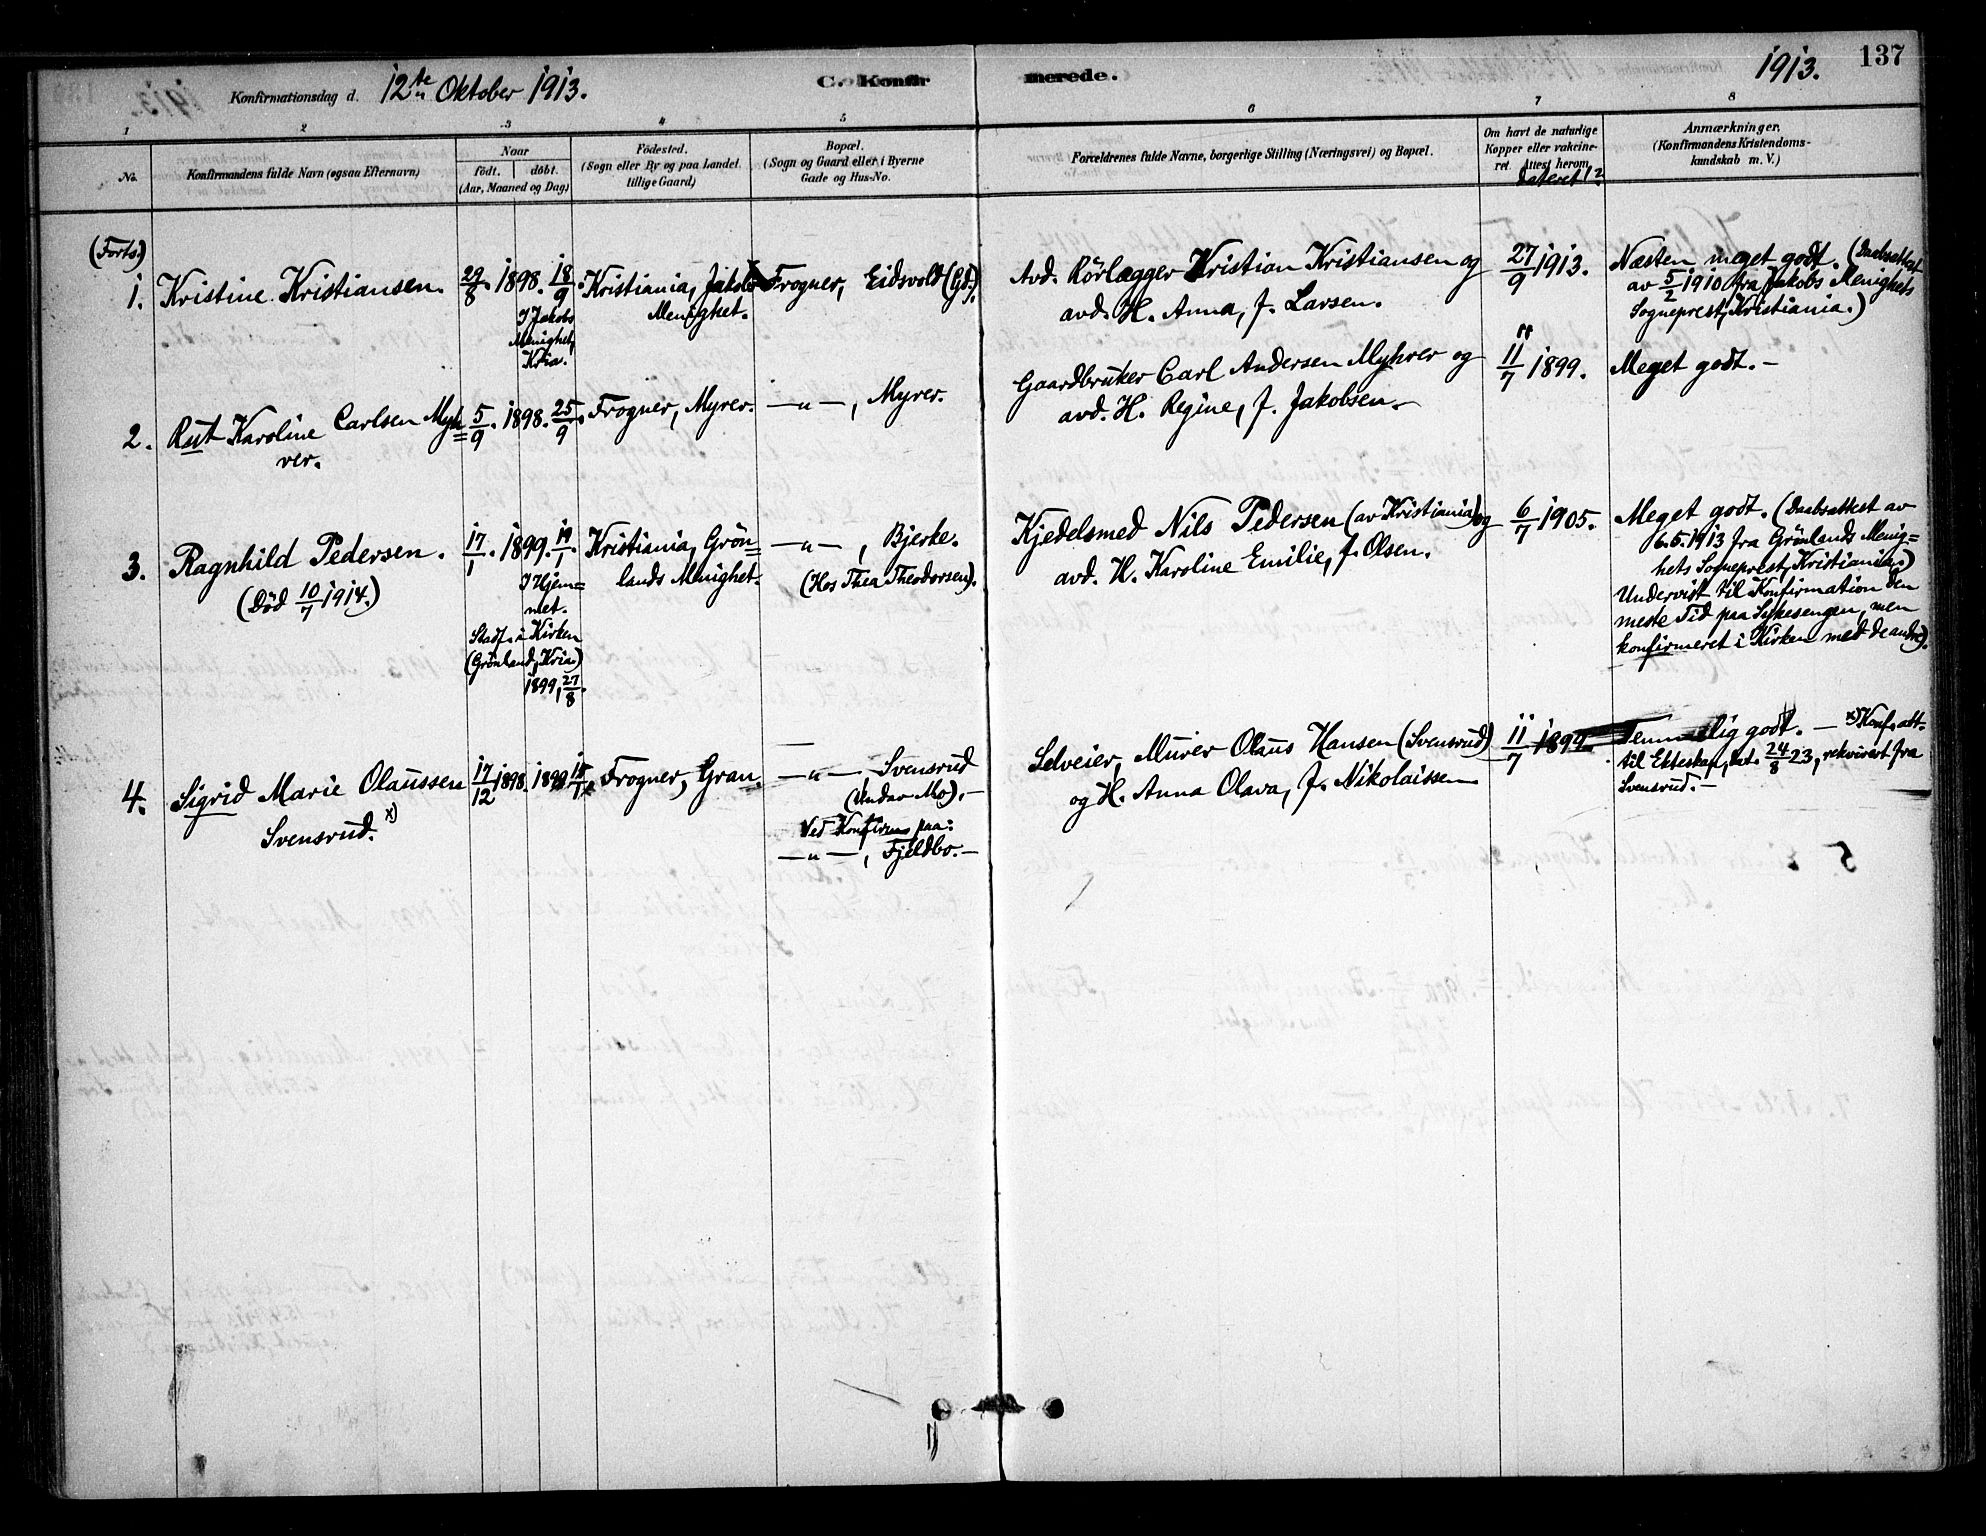 137
Konfirmationsdag d. 12te Oktober 1913.
C. Konfirmerede.
1913.
1 2 3 4 5 6 7 8
No.
Konfirmandens fulde Navn (ogsaa Efternavn)
Naar
födt. döbt.
(Aar, Maaned og Dag)
Födested.
(Sogn eller By og paa Landet
tillige Gaard)
Bopæl.
(Sogn og Gaard eller i Byerne
Gade og Hus-No.
Forældrenes fulde Navne, borgerlige Stilling (Næringsvei) og Bopæl.
Om havt de naturlige
Kopper eller vakcine-
ret. Attest herom
dateret
Anmærkninger.
(Konfirmandens Kristendoms-
kundskab m. V.)
(Forts.)
1. Kristine Kristiansen.
29/8. 1898. 18/9.
I Jakobs
Menighet,
Kria.
Kristiania, Jakobs
Menighet.
Frogner, Eidsvold (Gd.).
Avd. Rörlægger Kristian Kristiansen og
avd. H. Anna, f. Larsen.
27/9 1913.
Næsten meget godt. (Daabsattest
av 5/2 1910 fra Jakobs Menighets
Sogneprest, Kristiania.)
2. Rut Karoline Carlsen Myh=
rer.
5/9. 1898. 25/9.
Frogner, Myrer.
—"—, Myrer.
Gaardbruker Carl Andersen Myhrer og
avd. H. Regine, f. Jakobsen.
11/7 1899.
Meget godt.—
3. Ragnhild Pedersen.
(Död 10/7 1914.)
17/1. 1899. 19/1.
I Hjem=
met.
Stadf. i Kirken
(Grönland, Kria)
1899, 27/8.
Kristiania, Grön=
lands Menighet.
—"—, Bjerke.
(Hos Thea Theodorsen).
Kjedelsmed Nils Pedersen (av Kristiania) og
avd. H. Karoline Emilie, f. Olsen.
6/7 1905.
Meget godt. (Daabsattest av
6.5.1913 fra Grönlands Menig=
hets Sogneprest, Kristiania.)
Undervist til Konfirmation den
meste Tid paa Sykesengen, men
konfirmeret i Kirken med de andre).
4. Sigrid Marie Olaussen
Svensrud. x)
17/12 1898. 1899 15/1.
Frogner, Gran.
—"—, Svensrud
(Under Mo).—
Ved Konfirm paa:
—"—, Fjeldbo.—
Selveier, Murer Olaus Hansen (Svensrud)
og H. Anna Olava, f. Nikolaissen
11/7 1899.
Temmelig godt. — x) Konf. att.
til Ekteskap, dat. 24/8 23, rekvirert fra
Svensrud.—